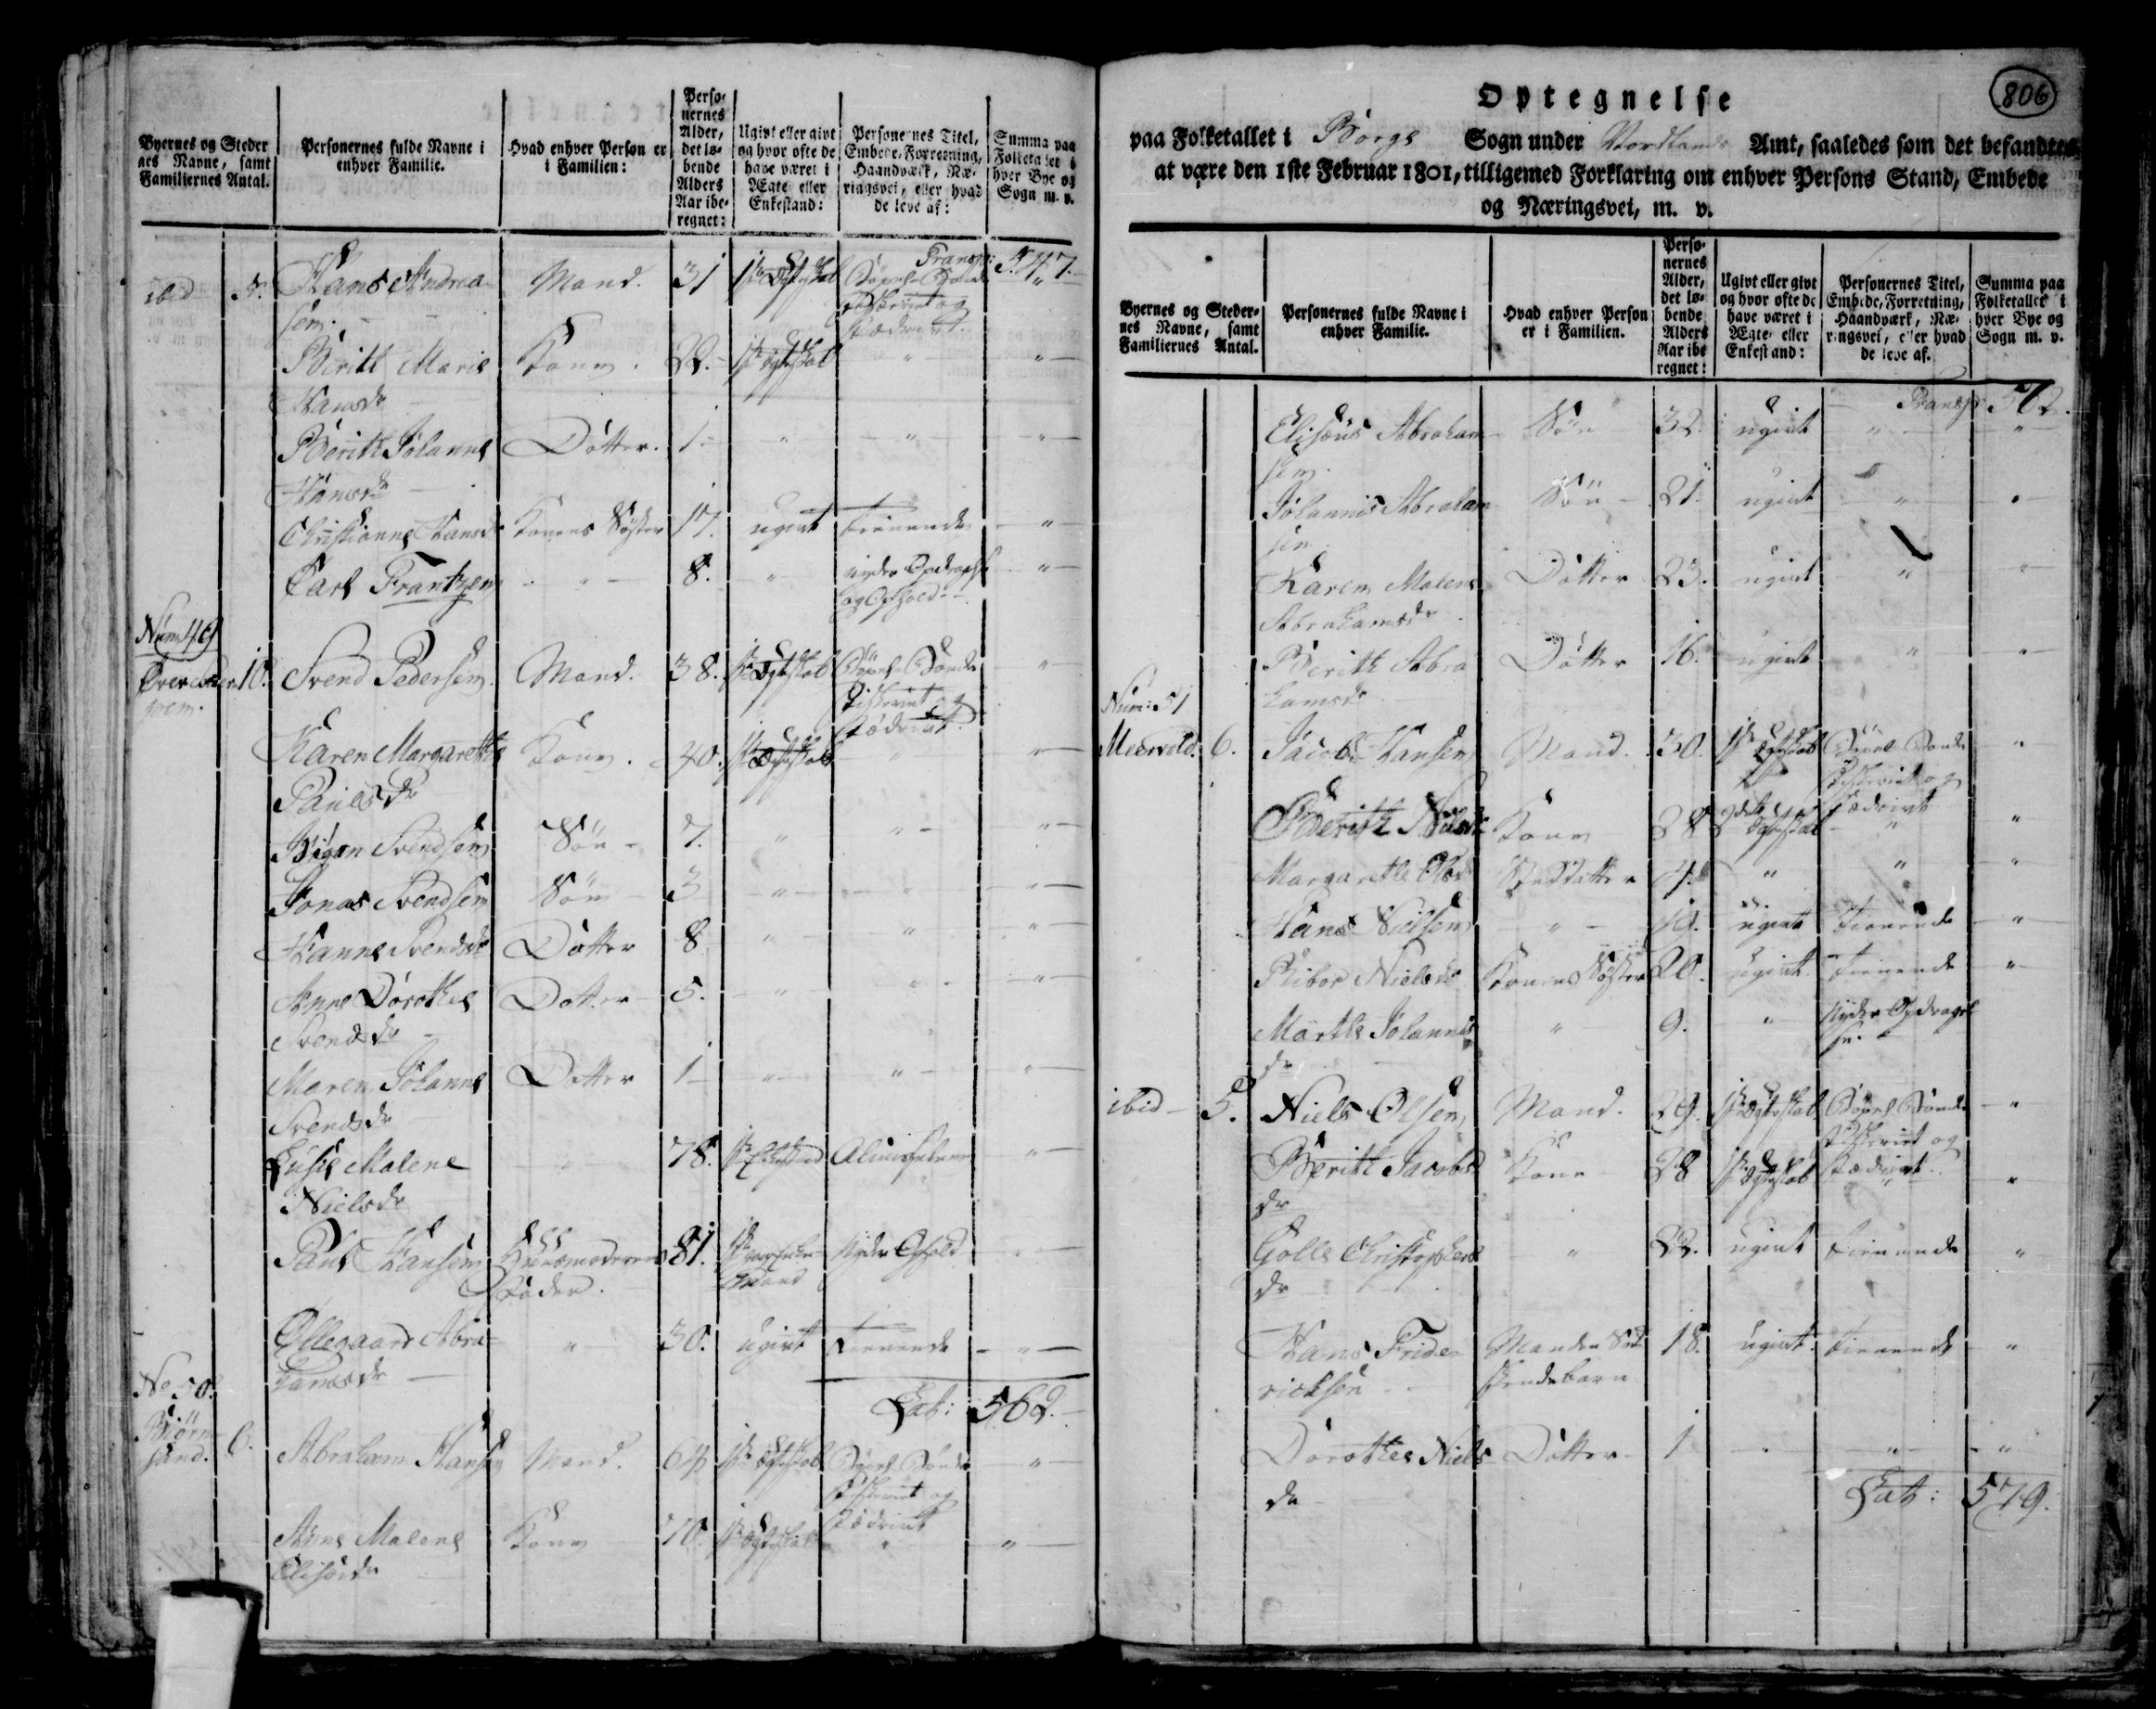 Byernes og Steder
nes Navne, samt
Familiernes Antal.
Personernes fulde Navne i
enhver Familie.
Hvad enhver Person er
i Familien:
Perso-
nernes
Alder,
det lø-
bende
Alders
Aar ibe-
regnet:
Ugivt eller givt
og hvor ofte de
have været i
Ægte- eller
Enkestand:
Personernes Titel,
Embede, Forretning,
Haandværk, Næ-
ringsvei, eller hvad
de leve af:
Summa paa
Folketallet i
hver Bye og
Sogn m. v.
Transp: 547.
ibid 5. Hans Andrea- Mand. 31 1ste Ægteskab Bøxel Bonde "
sen. Fiskeriet og
Jordbrug
Berith Marie Kone. 22. 1ste Ægteskab " "
Hansdr
Berith Johanne Dotter. 1. " " "
Hansdr
Christianne Hansdr Konens Søster 17. ugivt tienende "
Carl Frantzen " 8. " nyder Opdragelse "
og Ophold
Num 49
10. Svend Pedersen. Mand. 38. 1ste Ægteskab Bøxel Bonde "
Fiskeriet og
Karen Margarethe Kone. 40. 1ste Ægteskab " "
Paulsdr
Svendsen Søn 7. " " "
Jonas Svendsen Søn 3 " " "
Hanne Svendsdr Dotter 8 " " "
Anne Dorothea Dotter 5. " " "
Svendsdr
Maren Johanne Dotter 1 " " "
Svendsdr
Malene " 78. 1ste Enkestand Almisselem "
Nielsdr
Paul Hansen Huusmoderens 81. nyder Ophold "
Fader.
Ollegaard Abra- " 30. ugivt tienende "
hamsdr
Lat: 562.
No 50.
Biørn
sand. 6. Abraham Hansen Mand. 64 1ste Ægteskab Bøxel Bonde "
Fiskeriet og
Anne Malene Kone 70. 1ste Ægteskab " "
Elisædr
806
Optegnelse
paa Folketallet i Borge Sogn under Nordlands Amt, saaledes som det befandtes
at være den 1ste Februar 1801, tilligemed Forklaring om enhver Persons Stand, Embede
og Næringsvei, m. v.
Byernes og Steder-
nes Navne, samt
Familiernes Antal.
Personernes fulde Navne i
enhver Familie.
Hvad enhver Person
er i Familien.
Perso-
nernes
Alder,
det lø-
bende
Alders
Aar ibe
regnet:
Ugivt eller givt
og hvor ofte de
have været i
Ægte- eller
Enkestand:
Personernes Titel,
Embede, Forretning,
Haandværk, Næ-
ringsvei, eller hvad
de leve af.
Summa paa
Folketallet i
hver Bye og
Sogn m. v.
Transp 562.
Elisæus Abraham- Søn 32. ugivt " "
sen.
Johannes Abraham Søn 21. ugivt " "
sen
Karen Malene Dotter 23. ugivt " "
Abrahamsdr
Berith Abra Dotter 16. ugivt " "
hamsdr
Num: 51
6. Jacob Hansen Mand. 30. 1ste Ægteskab Bøxel Bonde "
Fiskeriet og
Berith Nielsdr Kone 38 2det Ægteskab " "
Margarethe Olsdr Stedatter 4. " " "
Hans Nielsen " 19. ugivt tienende "
Nielsdr Konens Søster 20. ugivt tienende "
Marthe Johannis " 9. " Nyder Opdragel "
dr se.
ibid 5. Niels Olsen Mand. 29. 1ste Ægteskab Bøxel Bonde "
Fiskeriet og
Berith Jacobs Kone 28 1ste Ægteskab " "
dr
Christophers " 22. ugivt tienende "
dr
Hans Fride Mandens 18. ugivt tienende "
ricksen
Dorothea Niels Dotter 1 " " "
dr
Lat: 579.